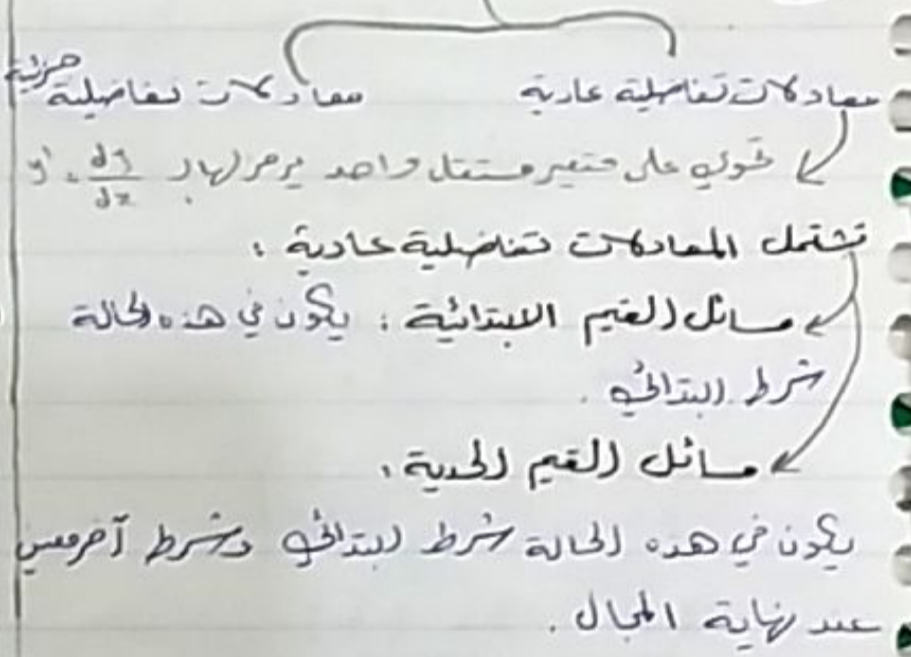 معادلات تفاضلية عادية
معادلات تفاضلية جزئية
تحوي على متغير مستقل واحد يرمز لها بـ dy/dx ، y'
تشتمل المعادلات تفاضلية عادية :
مسائل القيم الابتدائية : يكون في هذه الحالة
شرط ابتدائي .
مسائل القيم الحدية :
يكون في هذه الحالة شرط ابتدائي وشرط آخر معين
عند نهاية المجال .